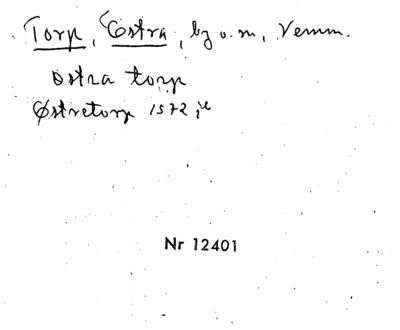 Torp, Östra, by o. m, Vemm.
Östra torp
Østretorp 1572
Nr 12401